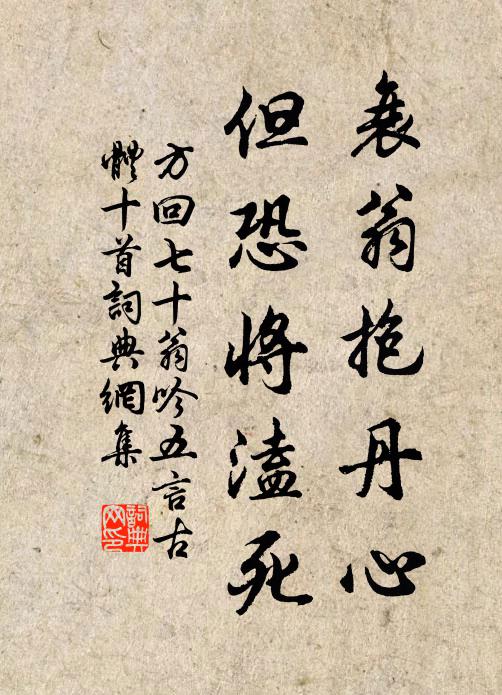 衰翁抱丹心
但恐將溘死
方回七十翁吟五言古
體十首詞典網集